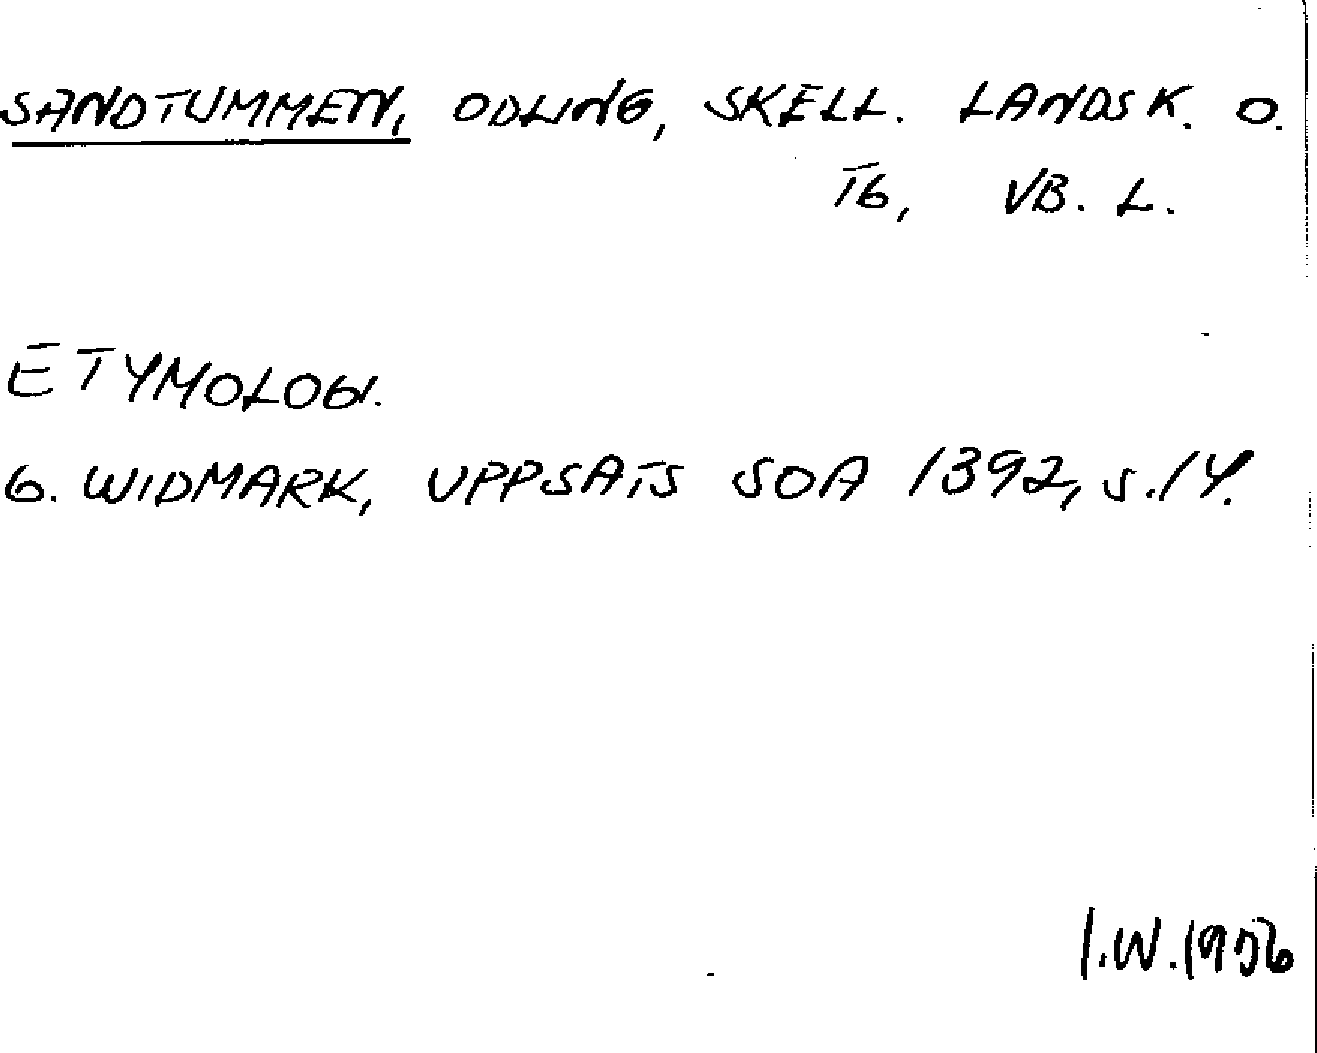 SANDTUMMEN, ODLING, SKELL. LANDSK. O.
TG, VB. L.
ETYMOLOGI.
G. WIDMARK, UPPSATS SOA 1392, S. 14.
I.W. 1956